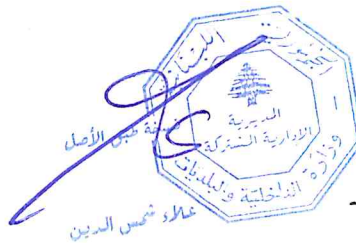 الجمهورية اللبنانية
وزارة الداخلية والبلديات
المديرية
الادارية المشتركة
نسخة طبق الأصل
علاء شمس الدين